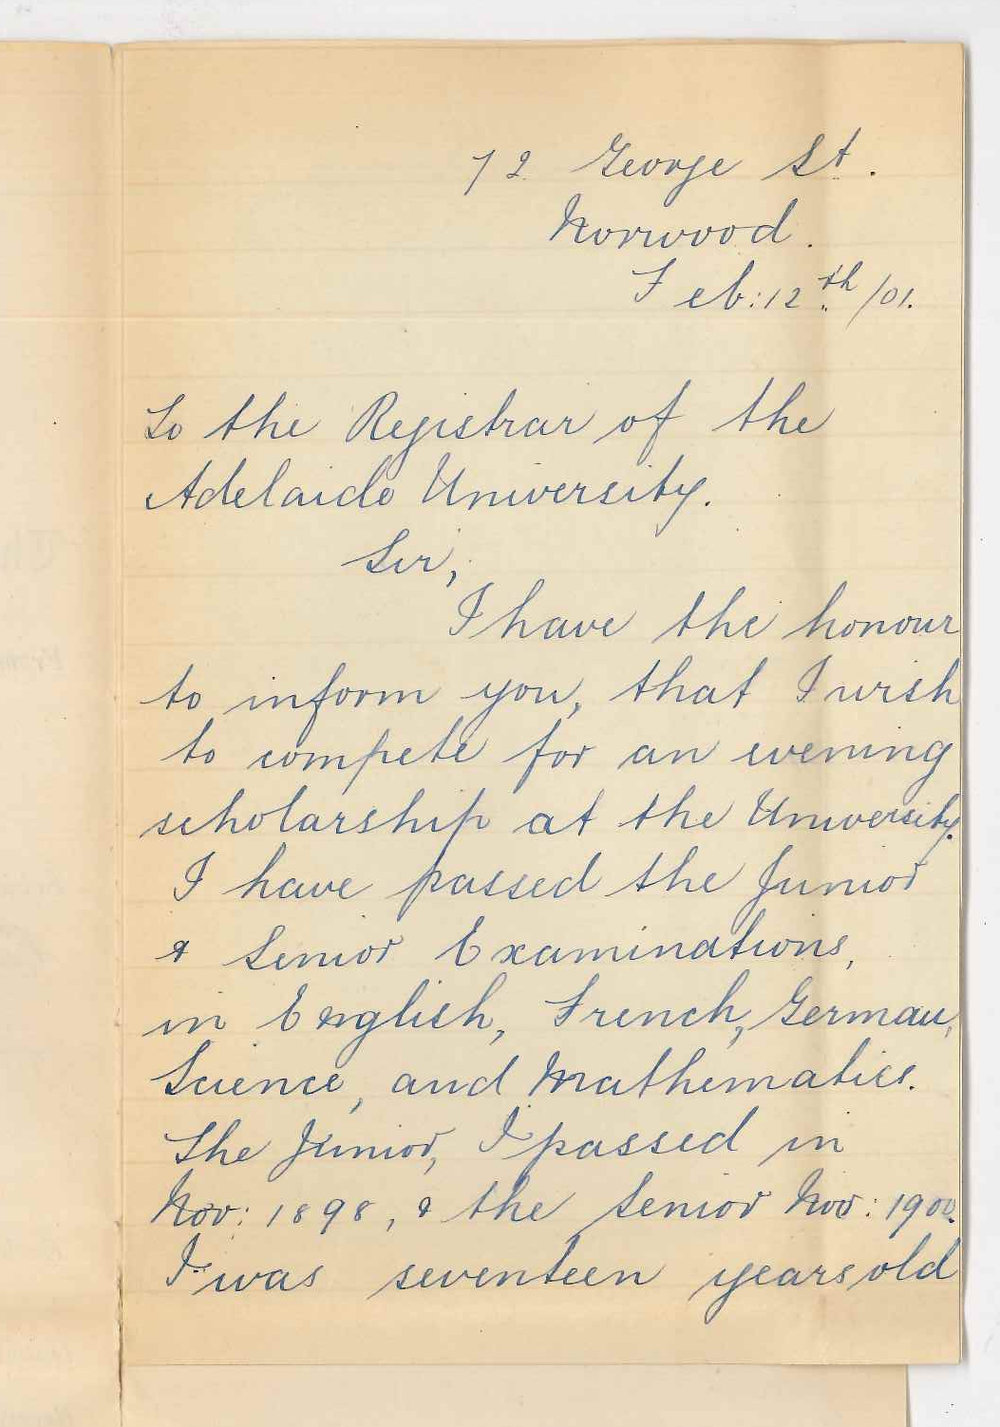 72 George St.
Norwood.
Feb: 12th /01.
To the Registrar of the
Adelaide University.
Sir,
I have the honour
to inform you, that I wish
to compete for an evening
scholarship at the University.
I have passed the Junior
& Senior Examinations,
in English, French, German,
Science, and Mathematics.
The Junior, I passed in
Nov: 1898, & the Senior Nov: 1900.
I was seventeen years old